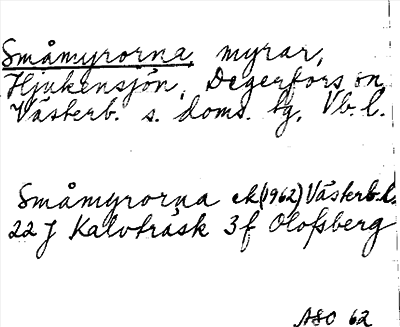 Småmyrorna, myrar,
Hjukensjön, Degerfors sn,
Västerb. s. doms. tg, Vb. l.
Småmyrorna ek (1962) Västerb.l.
22 J Kalvträsk 3f Olofsberg
ASO 62